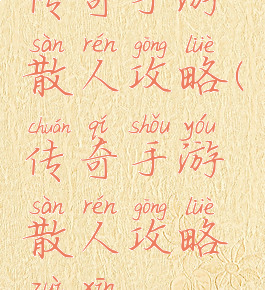 传奇手游
sàn rén gōng lüè
散人攻略(
chuán qí shǒu yóu
传奇手游
sàn rén gōng lüè
散人攻略
zuì xīn